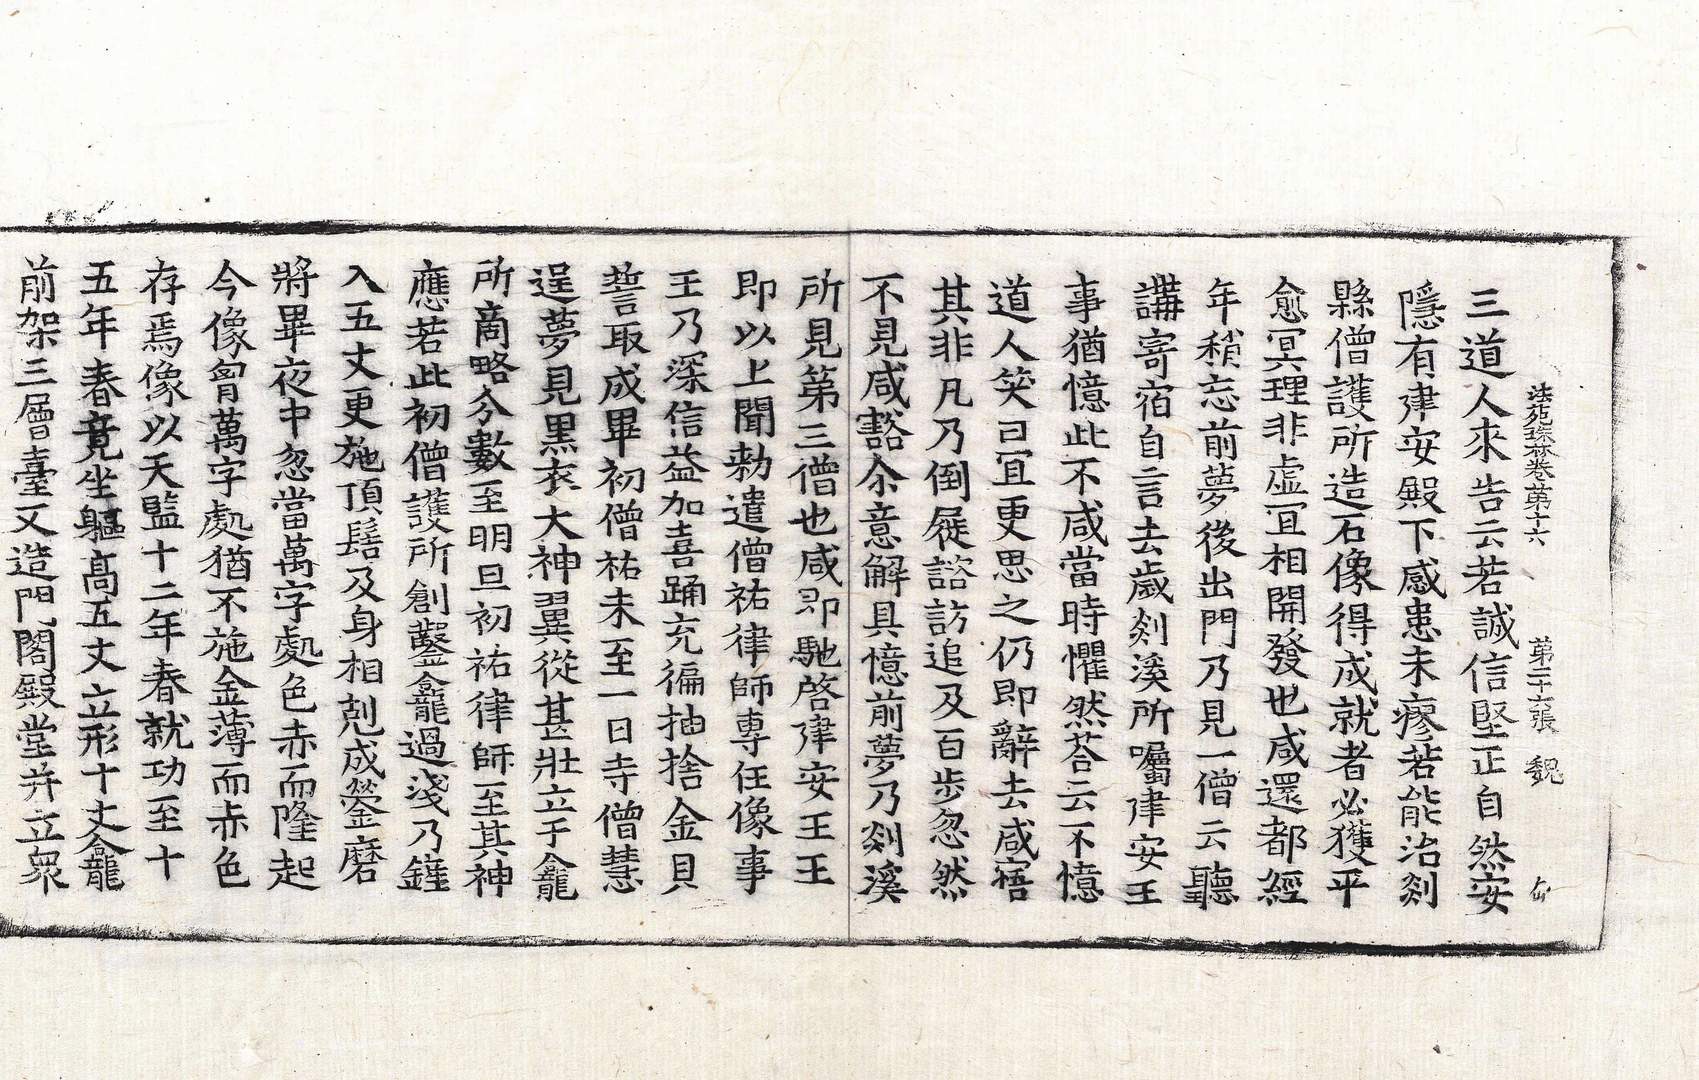 法苑珠林卷第十六 第二十六張 魏
三道人來告云若誠信堅正自然安
隱有建安殿下感患未瘳若能治剡
縣僧護所造石像得成就者必獲平
愈冥理非虛冝相開發也咸還都經
年稍忘前夢後出門乃見一僧云聽
講寄宿自言去歲剡溪所囑建安王
事猶憶此不咸當時懼然荅云不憶
道人笑曰冝更思之仍即辭去咸寤
其非凡乃倒屣諮訪追及百步忽然
不見咸豁尒意解具憶前夢乃剡溪
所見第三僧也咸即馳啓建安王王
即以上聞勑遣僧祐律師專任像事
王乃深信益加喜踊充徧抽捨金貝
誓取成畢初僧祐未至一日寺僧慧
逞夢見黒衣大神翼從甚壯立于龕
所商略分數至明旦初祐律師至其神
應若此初僧護所創鑿龕過淺乃鏟
入五丈更施頂髻及身相剋成瑩磨
將畢夜中忽當萬字處色赤而隆起
今像胷萬字處猶不施金薄而赤色
存焉像以天監十二年春就功至十
五年春竟坐軀高五丈立形十丈龕
前架三層臺又造門閣殿堂并立衆